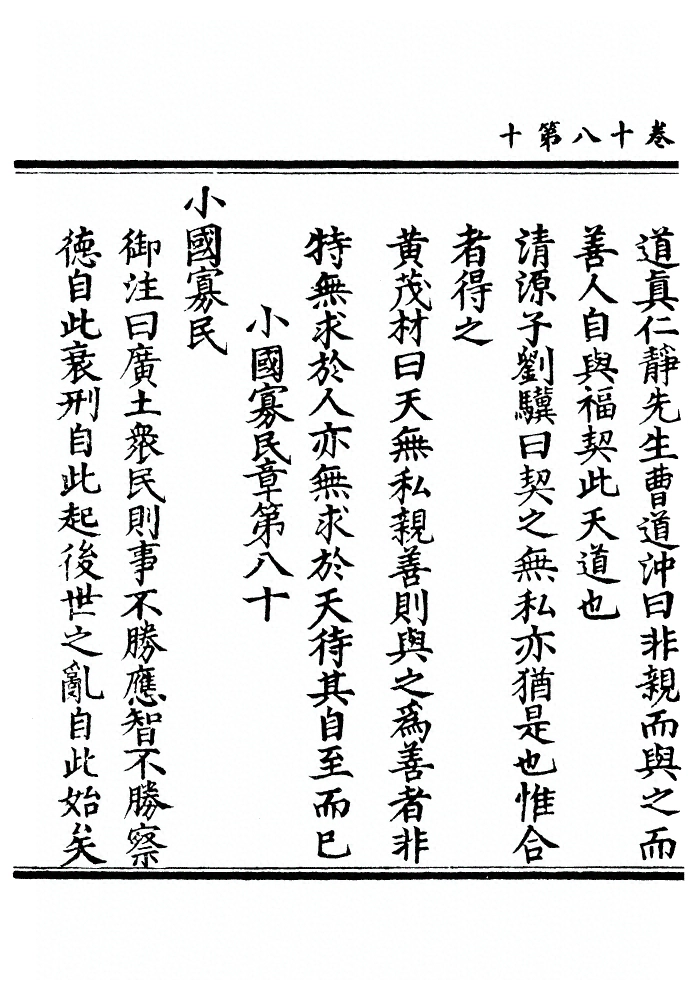 卷十八第十
道真仁靜先生曹道沖曰非親而與之而
善人自與福契此天道也
清源子劉驥曰契之無私亦猶是也惟合
者得之
黃茂材曰天無私親善則與之爲善者非
特無求於人亦無求於天待其自至而已
小國寡民章第八十
小國寡民
御注曰廣土衆民則事不勝應智不勝察
德自此衰刑自此起後世之亂自此始矣